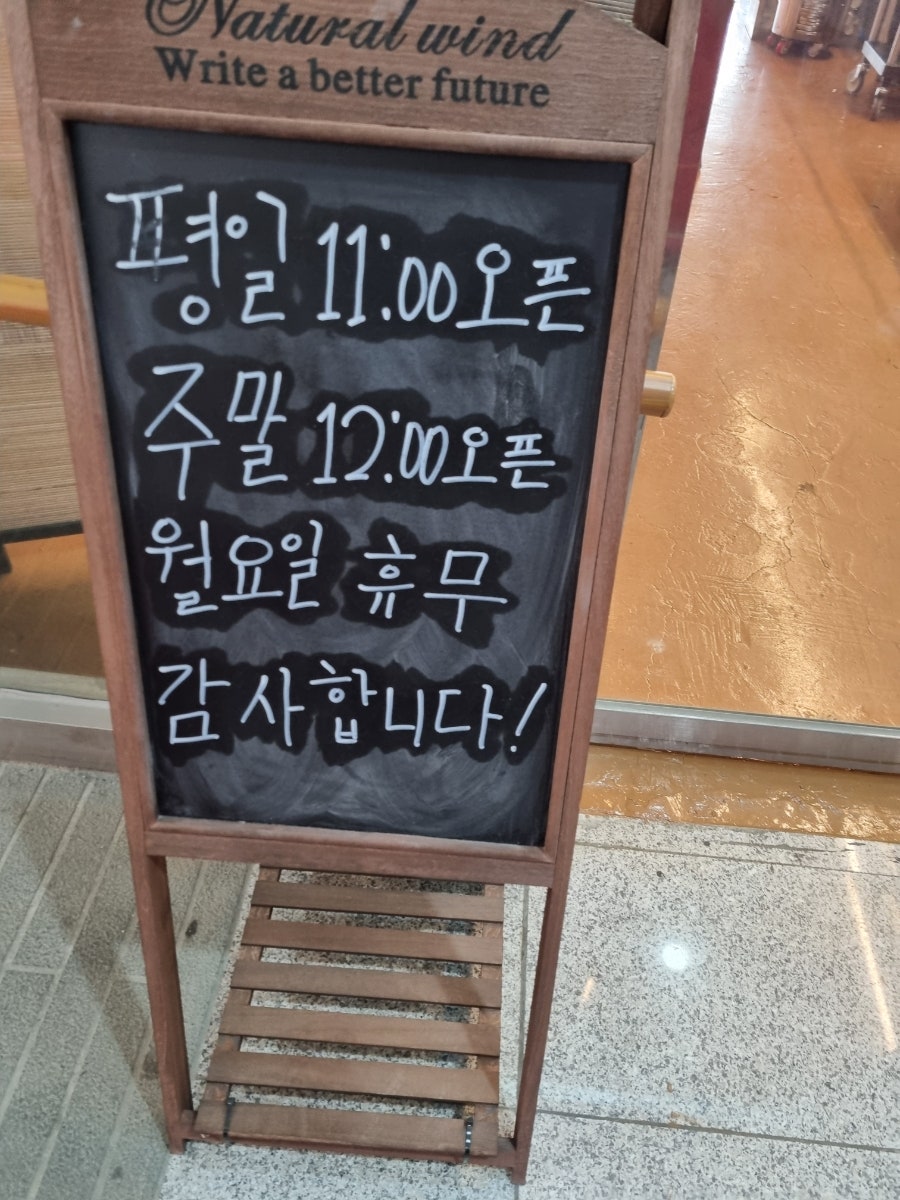 Natural wind
Write a better future
평일 11:00 오픈
주말 12:00 오픈
월요일 휴무
감사합니다!